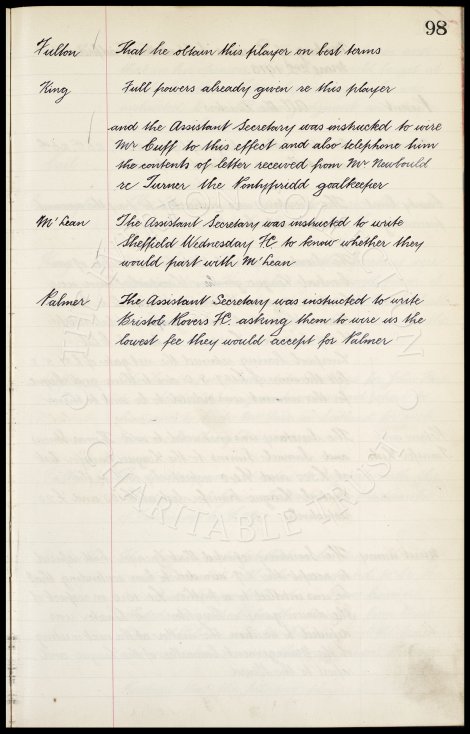 98
Fulton That he obtain this player on best terms
King Full powers already given re this player
and the Assistant Secretary was instructed to wire
Mr Cuff to this effect and also telephone him
the contents of letter received from Mr Newbould
re Turner the Pontypridd goalkeeper
M'Lean The Assistant Secretary was instructed to write
Sheffield Wednesday FC to know whether they
would part with M'Lean
Palmer The Assistant Secretary was instructed to write
Bristol Rovers FC. asking them to wire us the
lowest fee they would accept for Palmer
CHARITABLE TRUST